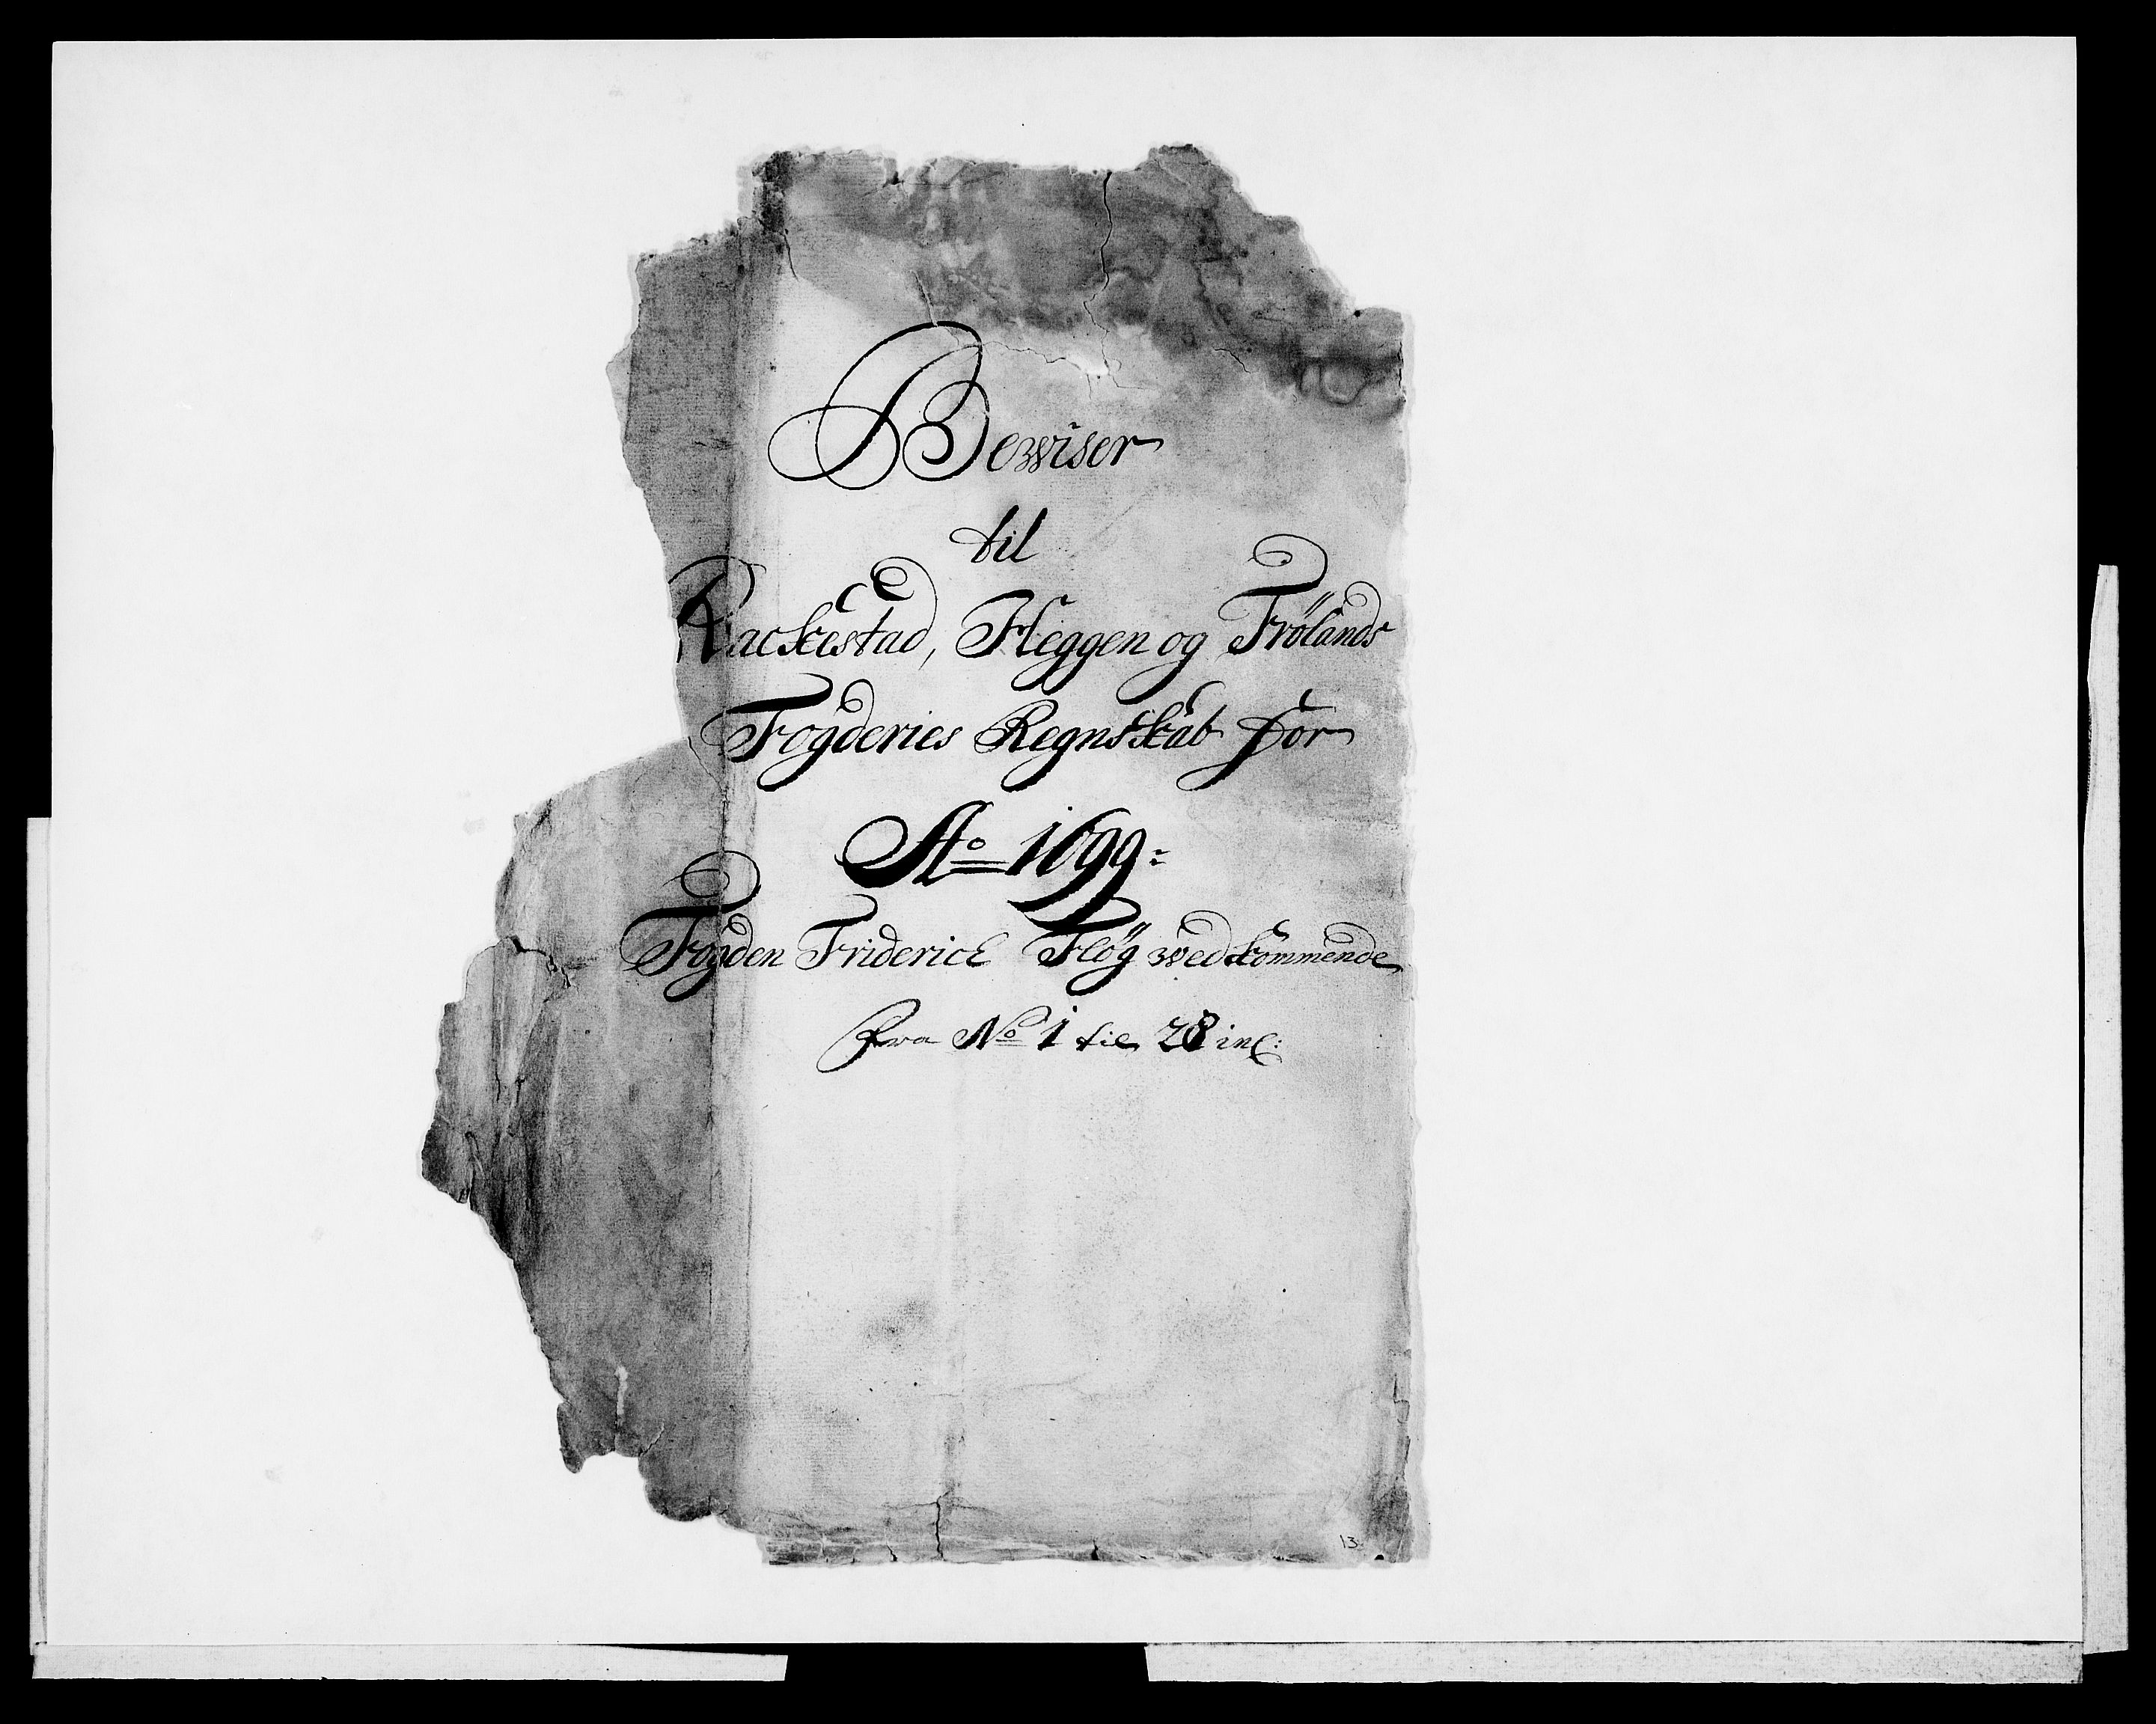 Bewiser
til
Rackestad, Heggen og Frölands
Fogderies Regnskab for
Ao 1699:
Fogden Friderick Flög wedkommende
fra No 1 til 28 inc:
13